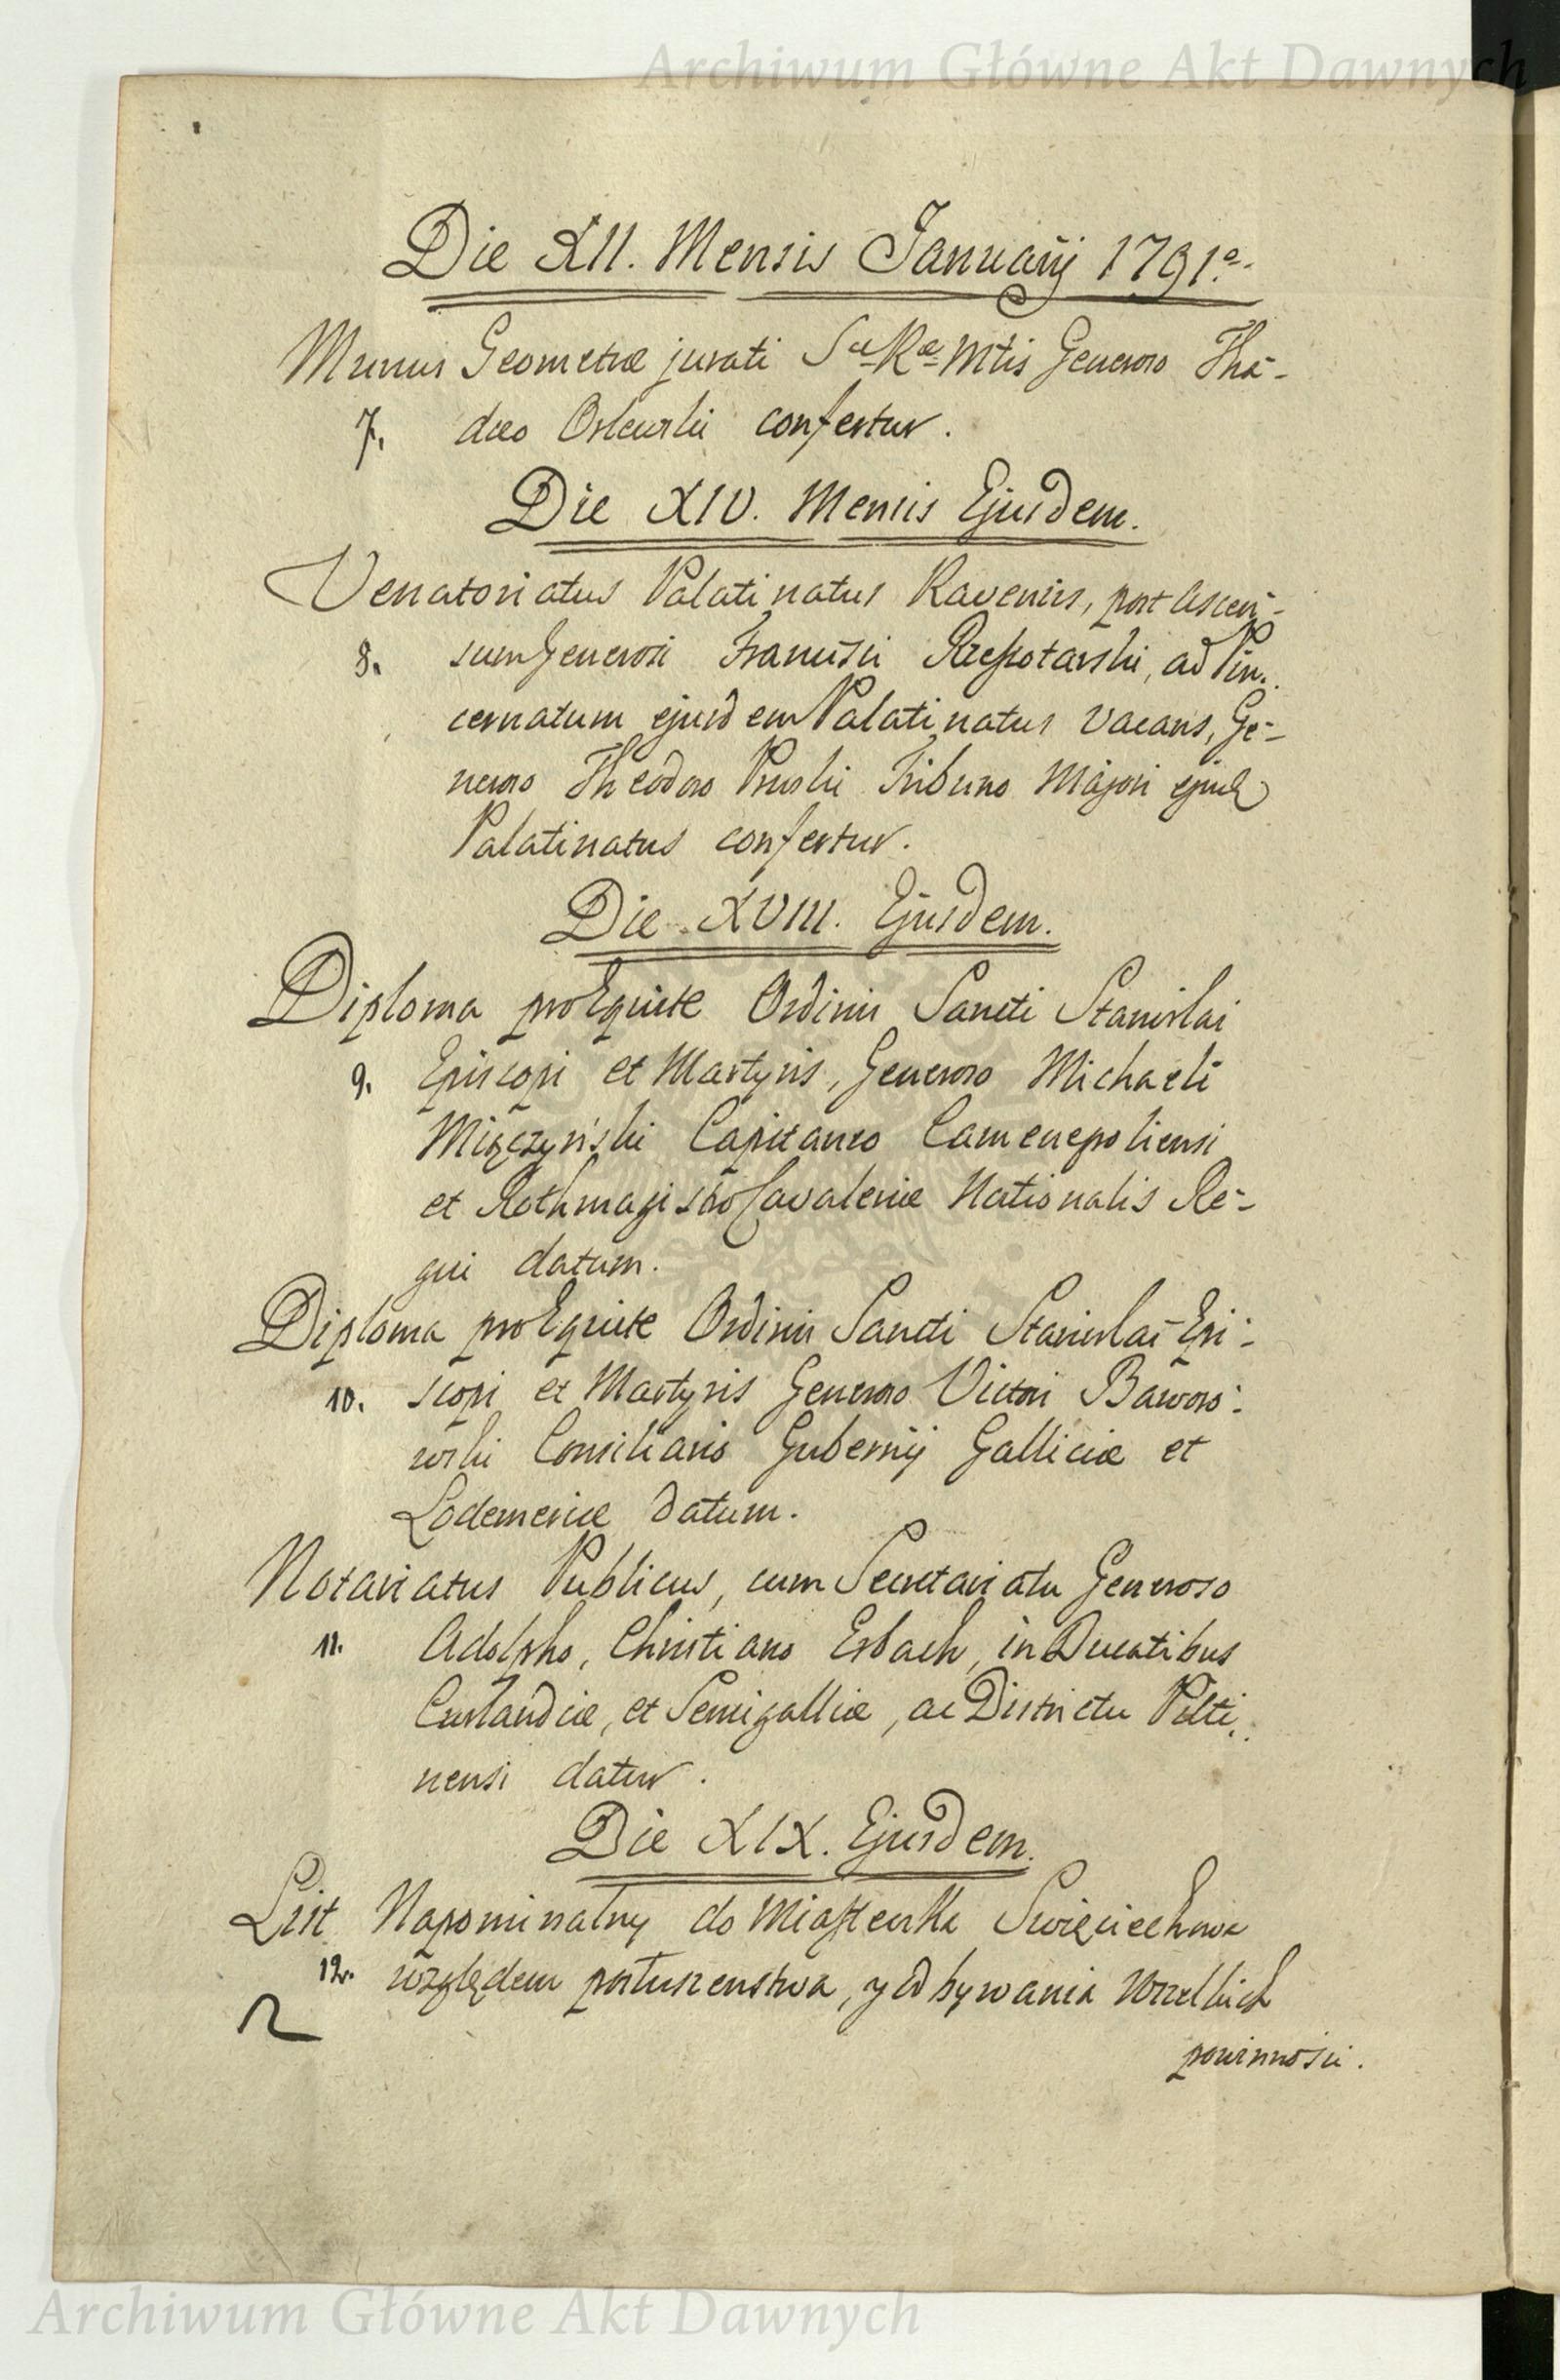 Archiwum Główne Akt Dawnych
Die XII. Mensis Januarij 1791.o
Munus Geometræ jurati Sæ Ræ Mtis Generoso Tha-
7. dæo Orłowski confertur.
Die XIV. Mensis Ejusdem.
Venatoriatus Palatinatus Ravensis, post ascen-
8. sum Generosi Francisci Rzeszotarski, ad Pin-
cernatum ejusdem Palatinatus vacans, Ge-
neroso Theodoro Pruski Tribuno Majori ejusd
Palatinatus confertur.
Die XVIII. Ejusdem.
Diploma pro Equite Ordinis Sancti Stanislai
9. Episcopi et Martyris, Generoso Michaeli
Miączyński Capitaneo Camenepoliensi
et Rothmagistro Cavaleriæ Nationalis Re-
gni datum.
Diploma pro Equite Ordinis Sancti Stanislai Epi-
10. scopi et Martyris Generoso Victori Baworo-
wski Consiliario Gubernij Galliciæ et
Lodemeriæ datum.
Notariatus Publicus, cum Secretariatu Generoso
11. Adolpho, Christiano Erbach, in Ducatibus
Curlandiæ, et Semigalliæ, ac Districtu Pilti-
nensi datur.
Die XIX. Ejusdem.
List Napominalny do Miasteczka Swięciechowa
12. względem posłuszenstwa, y odbywania wszelkich
powinności.
Archiwum Główne Akt Dawnych